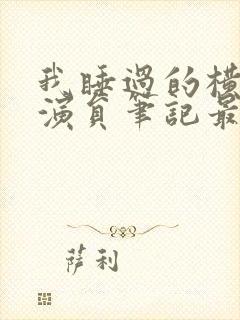 我睡過的
演員筆記最
薩利